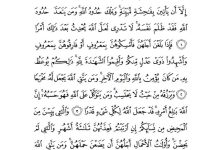 إِلَّآ أَن يَأْتِينَ بِفَٰحِشَةٍ مُّبَيِّنَةٍ وَتِلْكَ حُدُودُ ٱللَّهِ وَمَن يَتَعَدَّ حُدُودَ
ٱللَّهِ فَقَدْ ظَلَمَ نَفْسَهُۥ لَا تَدْرِى لَعَلَّ ٱللَّهَ يُحْدِثُ بَعْدَ ذَٰلِكَ أَمْرًا
۝١ فَإِذَا بَلَغْنَ أَجَلَهُنَّ فَأَمْسِكُوهُنَّ بِمَعْرُوفٍ أَوْ فَارِقُوهُنَّ بِمَعْرُوفٍ
وَأَشْهِدُوا۟ ذَوَىْ عَدْلٍ مِّنكُمْ وَأَقِيمُوا۟ ٱلشَّهَٰدَةَ لِلَّهِ ذَٰلِكُمْ يُوعَظُ بِهِۦ
مَن كَانَ يُؤْمِنُ بِٱللَّهِ وَٱلْيَوْمِ ٱلْءَاخِرِ وَمَن يَتَّقِ ٱللَّهَ يَجْعَل لَّهُۥ مَخْرَجًا
۝٢ وَيَرْزُقْهُ مِنْ حَيْثُ لَا يَحْتَسِبُ وَمَن يَتَوَكَّلْ عَلَى ٱللَّهِ فَهُوَ حَسْبُهُۥٓ إِنَّ
ٱللَّهَ بَٰلِغُ أَمْرِهِۦ قَدْ جَعَلَ ٱللَّهُ لِكُلِّ شَىْءٍ قَدْرًا ۝٣ وَٱلَّٰٓـِٔى يَئِسْنَ مِنَ
ٱلْمَحِيضِ مِن نِّسَآئِكُمْ إِنِ ٱرْتَبْتُمْ فَعِدَّتُهُنَّ ثَلَٰثَةُ أَشْهُرٍ وَٱلَّٰٓـِٔى لَمْ
يَحِضْنَ وَأُو۟لَٰتُ ٱلْأَحْمَالِ أَجَلُهُنَّ أَن يَضَعْنَ حَمْلَهُنَّ وَمَن يَتَّقِ